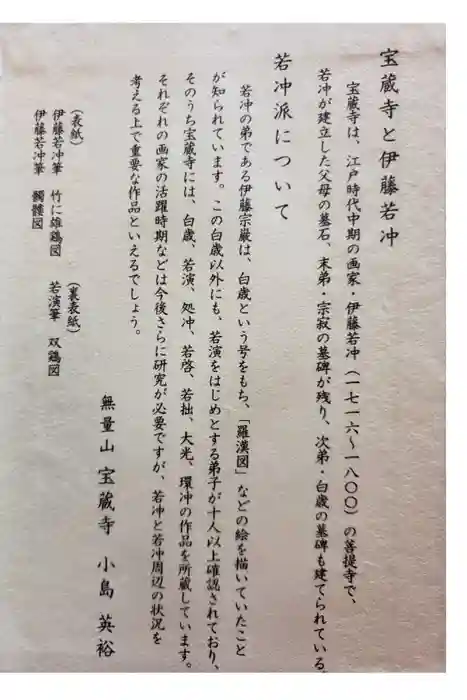 宝蔵寺と伊藤若冲
宝蔵寺は、江戸時代中期の画家・伊藤若冲（一七一六～一八〇〇）の菩提寺で、
若冲が建立した父母の墓石、末弟・宗寂の墓碑が残り、次弟・白歳の墓碑も建てられている。
若冲派について
若冲の弟である伊藤宗巌は、白歳という号をもち、「羅漢図」などの絵を描いていたこと
が知られています。この白歳以外にも、若演をはじめとする弟子が十人以上確認されており、
そのうち宝蔵寺には、白歳、若演、処冲、若啓、若拙、大光、環冲の作品を所蔵しています。
それぞれの画家の活躍時期などは今後さらに研究が必要ですが、若冲と若冲周辺の状況を
考える上で重要な作品といえるでしょう。
（表紙）
伊藤若冲筆　竹に雄鶏図
伊藤若冲筆　髑髏図
（裏表紙）
若演筆　双鶏図
無量山　宝蔵寺　小島　英裕